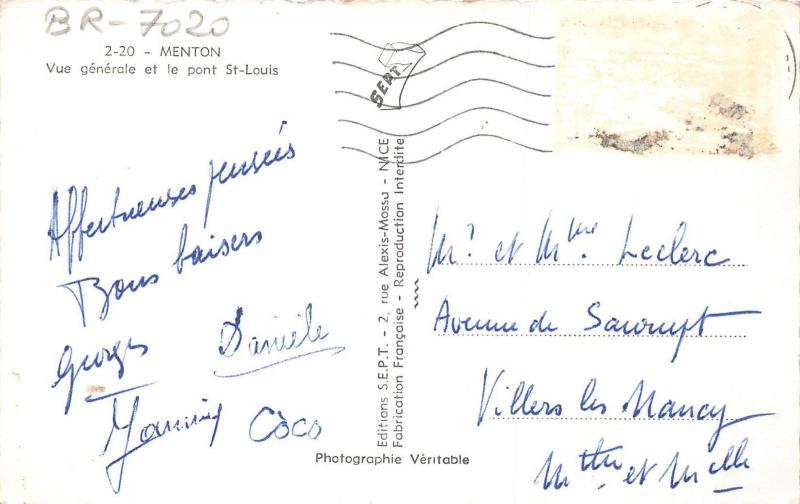 BR-7020
2-20 - MENTON
Vue générale et le pont St-Louis
SEPT
Affectueuses pensées
Bons baisers
Georges Danièle
Còco
Editions S.E.P.T. - 2, rue Alexis-Mossa - NICE
Fabrication Française - Reproduction Interdite
Photographie Véritable
Mr et Mme. Leclerc
Avenue de
Villers les Nancy
Mthe et Melle